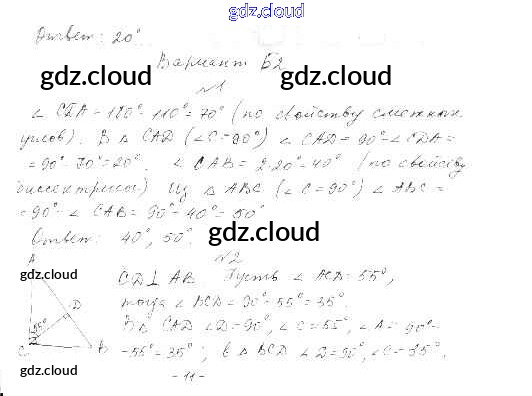 gdz.cloud
Ответ: 20°
Вариант Б2
gdz.cloud gdz.cloud
№1
∠ CDA = 180° - 110° = 70° (по свойству смежных
углов). В △ CAD (∠C = 90°) ∠ CAD = 90° - ∠ CDA =
= 90° - 70° = 20°. ∠ CAB = 2·20° = 40° (по свойству
биссектрисы) Из △ ABC (∠ C = 90°) ∠ ABC =
= 90° - ∠ CAB = 90° - 40° = 50°
Ответ: 40°, 50°. gdz.cloud
№2
A
gdz.cloud
CD⊥AB Пусть ∠ ACD = 55°,
тогда ∠ BCD = 90° - 55° = 35°.
D
55°
В △ CAD ∠D = 90°, ∠C = 55°, ∠A = 90° -
C B
- 55° = 35°; в △ BCD ∠D = 90°, ∠C = 35°.
gdz.cloud
- 11 -
gdz.cloud